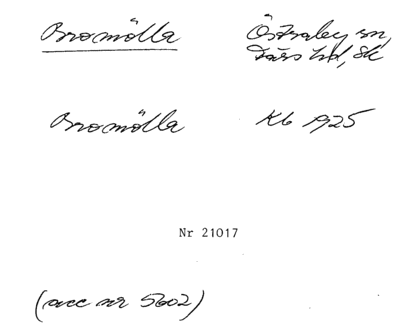 Bromölla Östraby sn,
Färs hd, Sk
Bromölla Kb 1925
Nr 21017
(acc nr 5602)